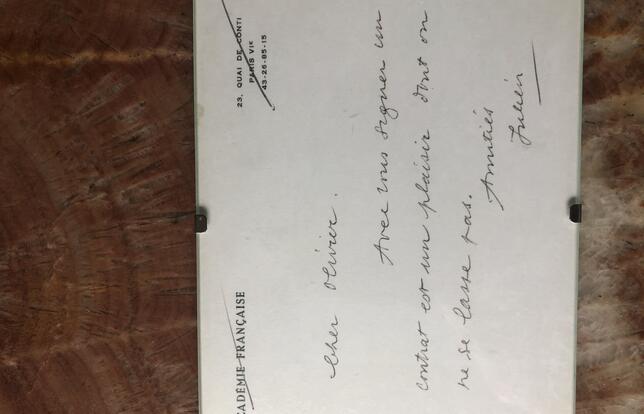 ACADÉMIE FRANÇAISE
23, QUAI DE CONTI
PARIS VIe
43-26-85-15
Cher Olivier.
Avec vous signer un
contrat est un plaisir dont on
ne se lasse pas.
Amitiés
Julien